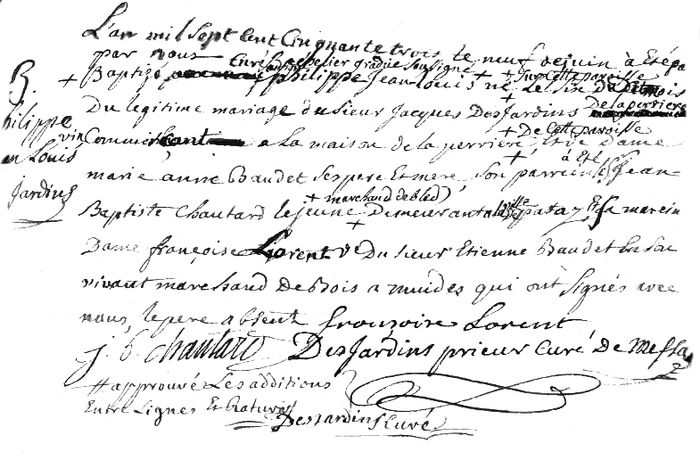 L'an mil Sept Cent Cinquante trois le neuf de juin à Eté pa
par nous Curé bachelier gradué Soussigné
B. + Baptizé philippe Jean Louis né le Six du dit mois
+ Sur cette paroisse
hilippe Du legitime mariage du Sieur Jacques DesJardins De la perriere
an Louis Commis a la maison de la perriere, et de dame
+ De Cette paroisse
Jardins marie anne Baudet Ses pere et mere, Son parrein Jean
à Eté
+ marchand de bled
Baptiste Chautard le jeune Demeurant a la ville patay Sa marein
Dame françoise Lorent Ve Du Sieur Etienne Baudet
vivant marchand de Bois a muides qui ont Signés avec
nous, le pere absent françoise Lorent
j. b. Chautard DesJardins prieur Curé De Messa
# approuvée Les additions
Entre Lignes Et Ratures
DesJardins Curé